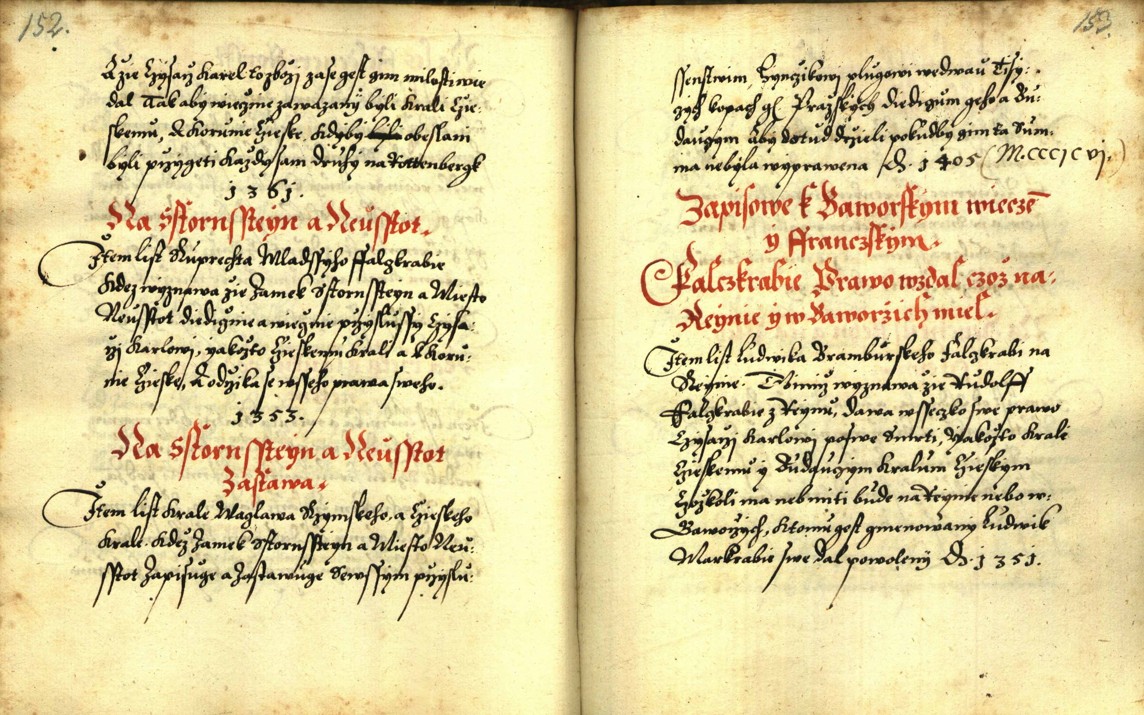 152.
A zie Czysarz Karel to zbozi zase gest gim milostiwie
dal Tak aby wiecznie zawazani byli Krali Cze:
skemu, A Korunie Czieske, kdyby byli obeslani
byli przygeti kazdy sam druhy na Rottenbergk
1361.
Na Sstornssteyn a Neusstot.
Item list Ruprechta Mladssyho ffalczkrabie
kdez wyznawa zie Zamek Sstornssteyn a Miesto
Neusstot diedicznie a wiecznie przyslussy Czysa:
rzi Karlowi, yakozto Czieskemu Krali a k Koru:
nie Czieske, A odrzika se wsseho prawa sweho.
1353.
Na Sstornssteyn a Neusstot
Zastawa.
Item list Krale Waczlawa Rzymskeho a Czieskeho
Krale kdez Zamek Sstornssteyn a Miesto Neu:
sstot Zapisuge a Zastawuge Sewssym przyslu:
153
ssenstwim, Hynczikowi plugowi wedwau Tisy:
czych kopach gr. Prazskych diediczum geho a Bu:
dauczym Aby dotud drzieli pokudby gim ta Sum:
ma nebyla wyprawena A. 1405 (M.CCCICVJ.)
Zapisowe k Baworskym wieczem
y Franczskym.
Falczkrabie Prawo wzdal czoz na:
Reynie y w Baworzich miel.
Item list Ludwika Bramburskeho Falczkrabi na
Reynie. W nimz wyznawa zie Rudolff
Falczkrabie z Reynu, dawa wsseczko swe prawo
Czysarzi Karlowi po swe Smrti, Yakozto Krali
Czieskemu y Buduczym Kralum Czieskym
Czozkoli ma neb miti bude na Reynie nebo w:
Baworzych, K tomu gest gmenowany Ludwik
Markrabie swe dal powoleny A. 1351.